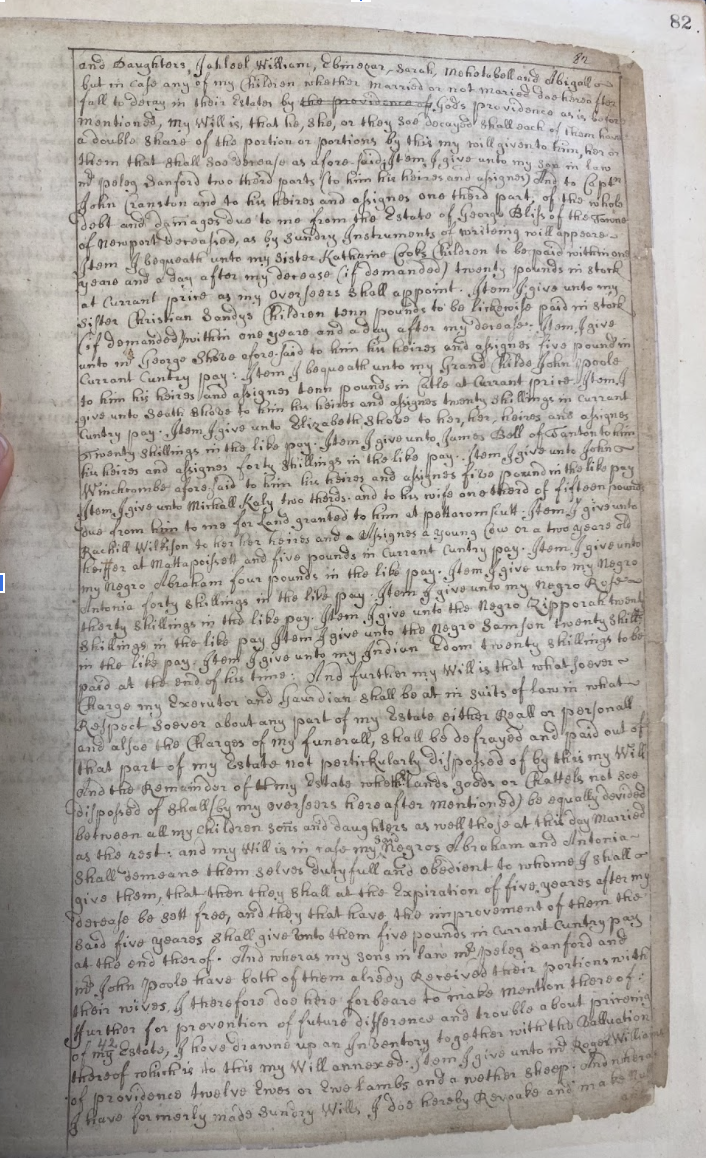 82
82
and Daughters, Jahleel William, Ebenezar, Sarah, Mehetabell and Abigall
but in case any of my Children whether Married or not Maried doe hereafter
fall to decay in their Estates by the providence of Gods providence as is before
mentioned, my Will is, that he, she, or they soe decayed shall each of them have
a double share of the portion or portions by this my will given to him, her or
them that shall soe decrease as afore-said; Item, I give unto my son in law
mr Peleg Sanford two therd parts (to him his heires and assignes) And to Captn
John Cranston and to his heires and assignes one therd part, of the whole
debt and damages due to me from the Estate of George Bliss of the Towne
of Newport deceased, as by sundry Instruments of writeing will appeare
Item I bequeath unto my Sister Katherine Cooks Children to be paid within one
yeare and a day after my decease (if demanded) twenty pounds in stock
at Currant price as my overseers shall appoint. Item I give unto my
Sister Christian Sandys Children tenn pounds to be lickewise paid in Stock
(if demanded) within one yeare and a day after my decease. Item, I give
unto mr George Shove afore-said to him his heires and assignes five pound in
Currant Cuntry pay: Item I bequeath unto my Grand Childe John Poole
to him his heires and assignes tenn pounds in Catle at Currant price Item, I
give unto Seath Shove to him his heires and assignes twenty shillings in Currant
Cuntry pay. Item I give unto Elizabeth Shove to her, her heires and assignes
Twenty shillings in the like pay. Item I give unto James Bell of Tanton to him
his heires and assignes forty shillings in the like pay. Item I give unto John
Winchcombe afore said to him his heires and assignes five pound in the like pay
Item, I give unto Michall Kaly two therds and to his wife one therd of fifteen pound
due from him to me for Land granted to him at pettaromscutt. Item I give unto
Rachill Wilkison to her her heires and a Assignes a young Cow or a two yeare old
heiffer at Mattapoissett and five pounds in Currant Cuntry pay. Item. I give unto
my Negro Abraham four pounds in the like pay. Item I give unto my Negro
Antonia forty shillings in the like pay. Item I give unto my Negro Rose
therty shillings in the like pay. Item, I give unto the Negro Zipporah twenty
shillings in the like pay Item I give unto the Negro Samson twenty shill:
in the like pay. Item I give unto my Indian Edom twenty shillings to be
paid at the end of his time: And further my Will is that what soever
Charge my Executor and Gaurdian shall be at in suits of law in what
Respect soever about any part of my Estate either Reall or personall
and alsoe the Charges of my funerall, shall be defrayed and paid out of
that part of my Estate not pertickularly disposed of by this my Will
And the Remainder of my Estate whether lands goods or Chattels not soe
disposed of shall (by my overseers hereafter mentioned) be equally devided
between all my Children sons and daughters as well those at this day Married
as the rest: and my Will is in case my said Negros Abraham and Antonia
shall demeane them selves dutyfull and obedient to whome I shall
give them, that then they shall at the Expiration of five yeares after my
decease be sett free, and they that have the improvement of them the
said five yeares shall give unto them five pounds in Currant Cuntry pay
at the end therof. And wheras my sons in law mr Peleg Sanford and
mr John Poole have both of them already Received their portions with
their wives, I therefore doe here forbeare to make mention there of:
Further for prevention of future difference and trouble about priceing
of my Estate, I have drawne up an Inventory together with the Valluation
thereof which is to this my Will annexed. Item I give unto mr Roger Williams
of providence twelve Ewes or Ewe lambs and a wether sheep. And wheras
I have formerly made sundry Wills, I doe hereby Revoake and make